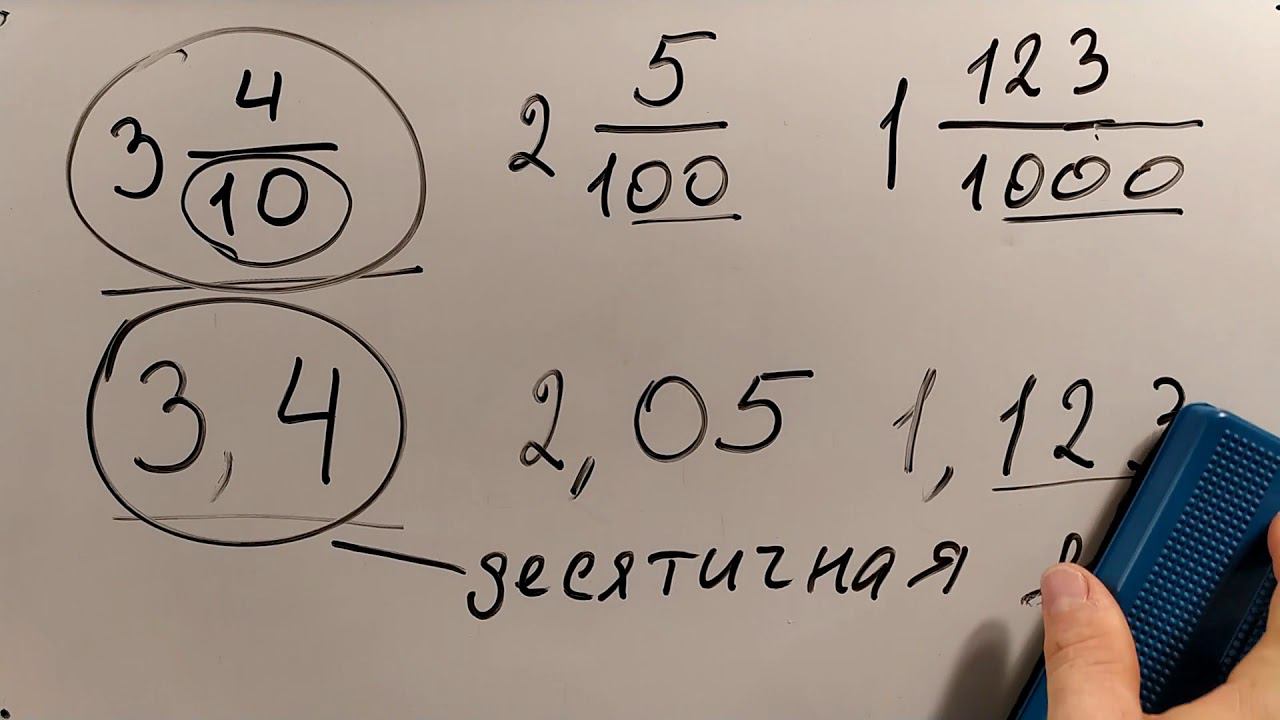 3 4/10 2 5/100 1 123/1000
3,4 2,05 1,123
десятичная